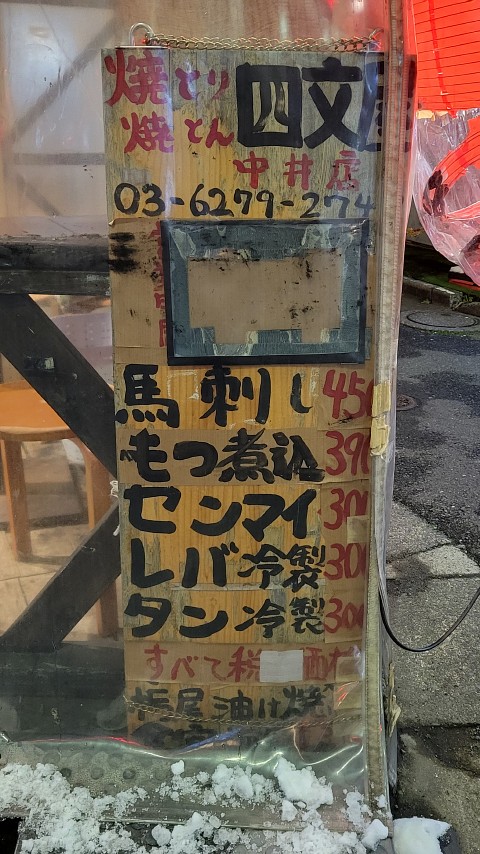 焼とり
焼とん
四文屋
中井店
03-6279-274
馬刺し 450
もつ煮込 390
センマイ 300
レバ冷製 300
タン冷製 300
すべて税
栃尾油け焼